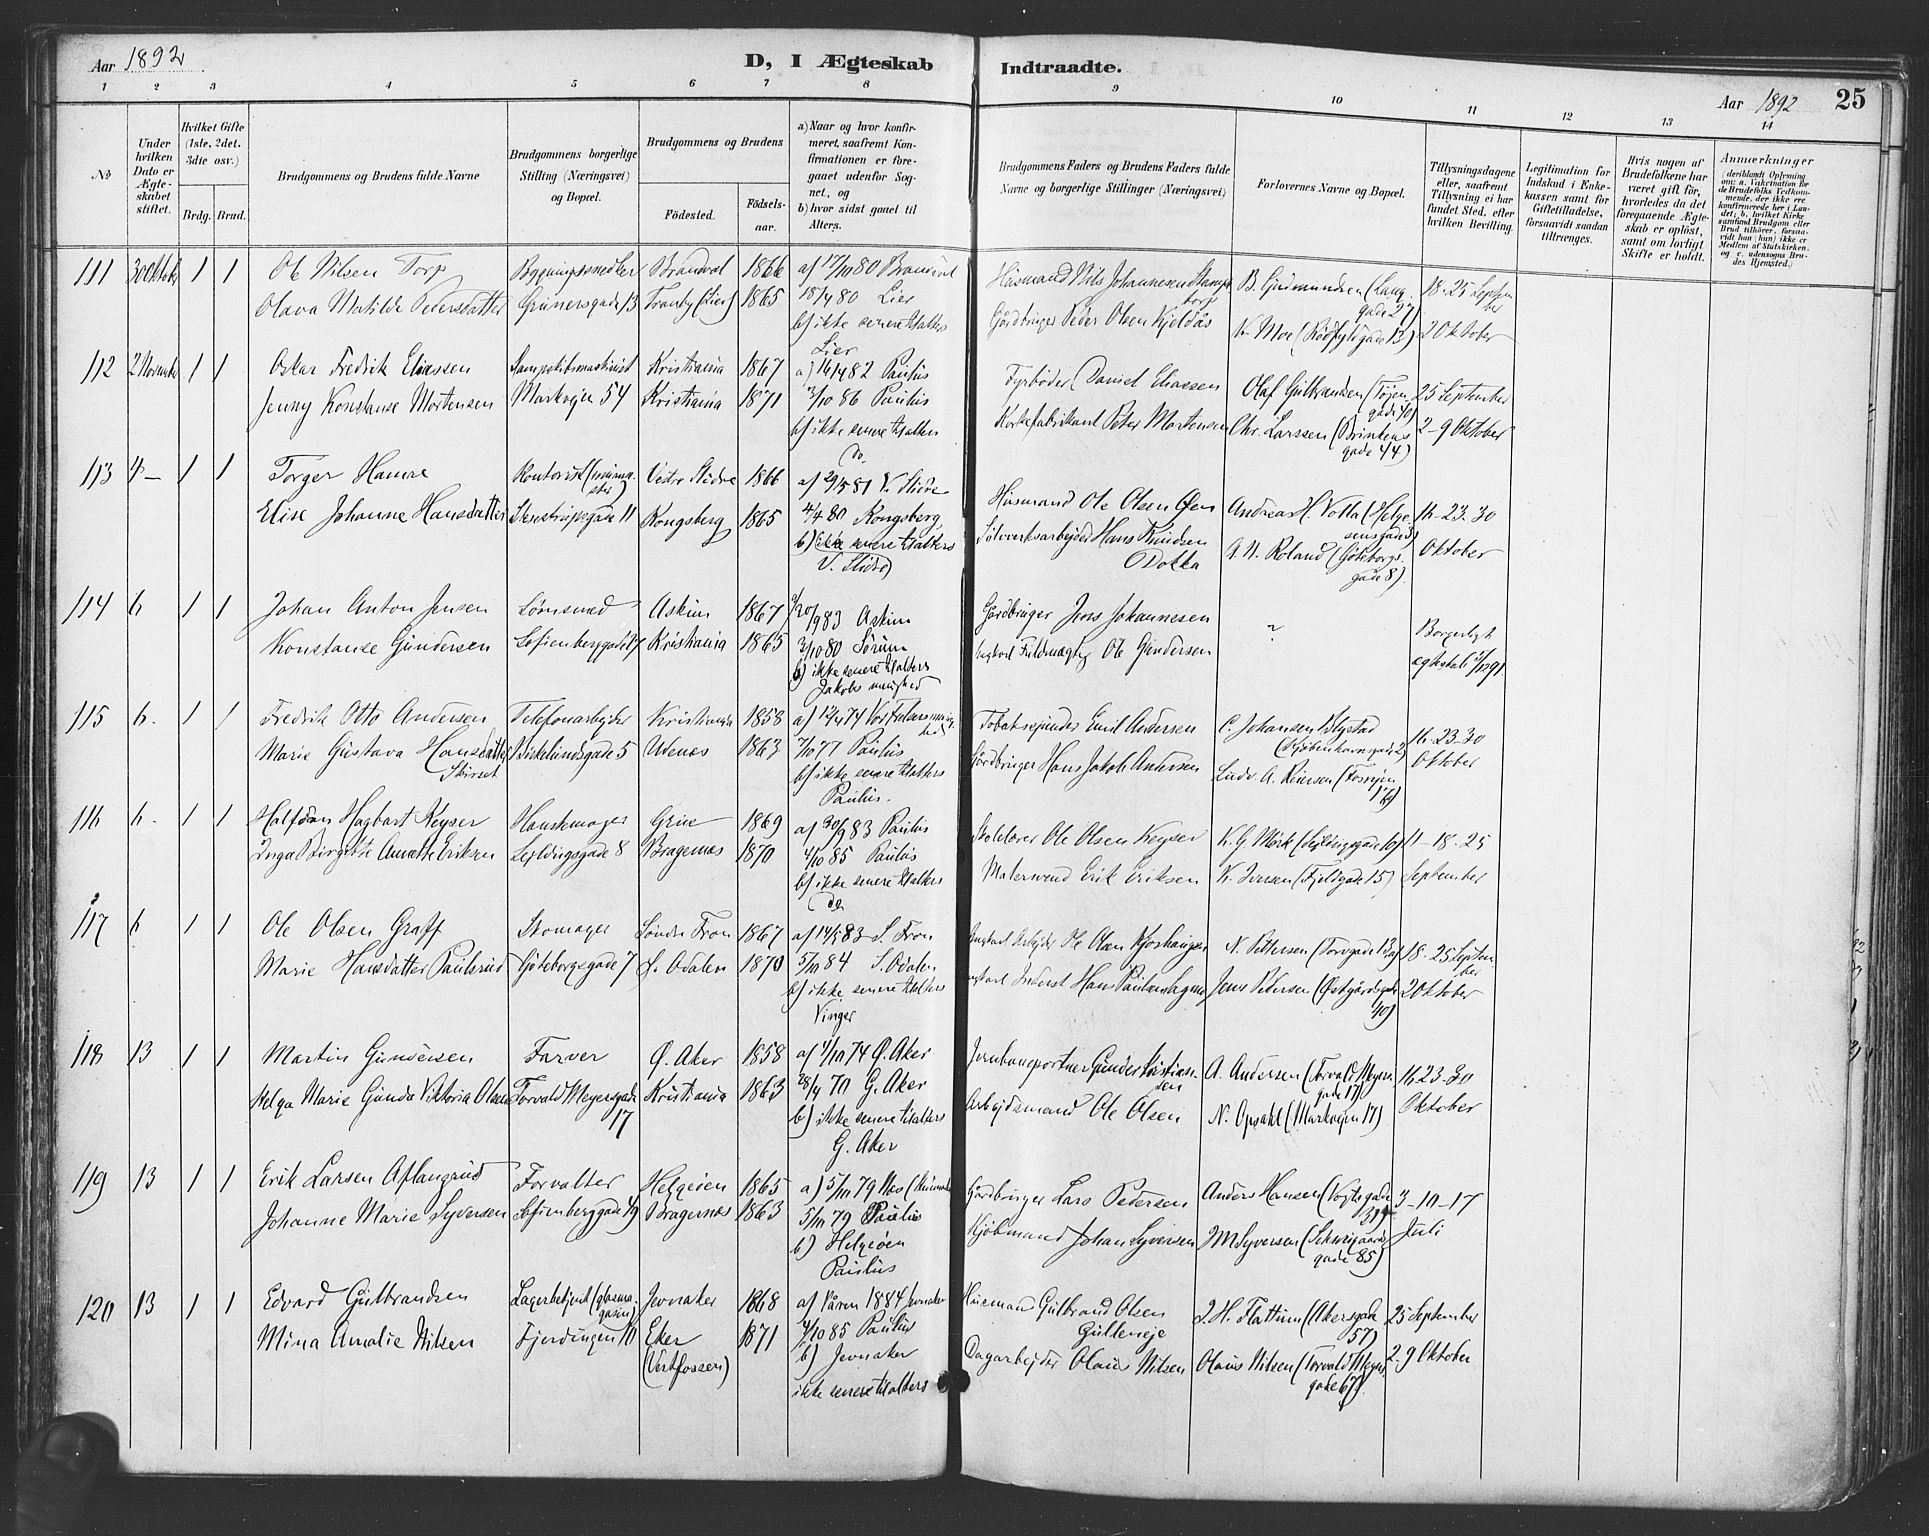 Aar 1892
D, I Ægteskab
Indtraadte.
Aar 1892
25
1 2 3 4 5 6 7 8 9 10 11 12 13 14
No
Under hvilken Dato er Ægteskabet stiftet.
Hvilket Gifte (1ste, 2det, 3die osv.)
Brdg. Brud.
Brudgommens og Brudens fulde Navne
Brudgommens borgerlige Stilling (Næringsvei) og Bopæl.
Brudgommens og Brudens
Fødested. Fødselsaar.
a) Naar og hvor konfirmeret, saafremt Konfirmationen er foregaaet udenfor Sognet, og
b) hvor sidst gaaet til Alters.
Brudgommens Faders og Brudens Faders fulde Navne og borgerlige Stillinger (Næringsvei)
Forlovernes Navne og Bopæl.
Tillysningsdagene eller, saafremt Tillysning ei har fundet Sted, efter hvilken Bevilling.
Legitimation for Indskud i Enkekassen samt for Giftetilladelse, forsaavidt saadan tiltrænges.
Hvis nogen af Brudefolkene har været gift før, hvorledes da det foregaaende Ægteskab er opløst, samt om lovligt Skifte er holdt.
Anmærkninger
111 30 Oktober 1 1 Ole Nilsen Torp Bygningssnedker Brandval 1866 a) 17/10 80 Brandval Husmand Nils Johannesen B. Gudmundsen (Lang- 18-25 Septem-
gade 27) ber
Olava Matilde Pedersdatter Grünersgade 13 Tranby (Lier) 1865 18/4 80 Lier Gårdbruger Peder Olsen Kjeldås K. Moe (Rødfyldgade 13) 2 Oktober
b) ikke senere til alters
Lier
112 2 November 1 1 Oskar Fredrik Eliassen Dampskibsmaskinist Kristiania 1867 a) 16/4 82 Paulus Fyrbøder Daniel Eliassen Olaf Gulbrandsen (Tøjen- 25 September
gade 40)
Jenny Konstanse Mortensen Markvejen 54 Kristiania 1871 3/10 86 Paulus Korkefabrikant Peter Mortensen Chr. Larssen (Brinkens 2-9 Oktober
b) ikke senere til alters gade 44)
do.
113 4 – 1 1 Torger Hamre Kontorist Vestre Slidre 1866 a) 29/5 81 V. Slidre Husmand Ole Olsen Øen Andreas H. Votta (Helge- 16-23-30
sensgade 3)
Elise Johanne Hansdatter Stenstrupsgade 11 Kongsberg 1865 4/4 80 Kongsberg, Sølvverksarbejder Hans Knudsen A. N. Roland (Göteborgs- Oktober
b) ikke senere til alters Dokka gade 8).
V. Slidre)
114 6 1 1 Johan Anton Jensen Lørnsmed Askim 1867 20/9 83 Askim Gårdbruger Jens Johannesen ? Borgerligt
Konstanse Gundersen Sofienberggade 17 Kristiania 1865 3/10 80 Sørum Ole Gundersen
b) ikke senere til alters
Jakobs menighed
115 6. 1 1 Fredrik Otto Andersen Telefonarbejder Kristiania 1858 a) 12/4 74 Vor Frelsers menig- Tobaksspinder Emil Andersen C. Johansen Blystad 16-23-30
hed (Kjøbenhavnsgade 2)
Marie Gustava Hansdatter Birkelundsgade 5 Udenæs 1863 7/10 77 Paulus Gårdbruger Hans Jakob Andersen Ludv. A. Reiersen (Fossvejen Oktober
Skirset b) ikke senere til alters
Paulus.
116 6. 1 1 Halfdan Hagbart Keyser Hanskemager Grue 1869 a) 30/9 83 Paulus Skolelærer Ole Olsen Keyser K. G. Mørk 11-18-25
Inga Birgitte Amalie Eriksen Seildugsgade 8 Bragernæs 1870 4/10 85 Paulus Malersvend Erik Eriksen K. Iversen (Fjeldgade 15) September
b) ikke senere til alters
do
117 6 1 1 Ole Olsen Graff Skomager Søndre Fron 1867 a) 14/5 83 S. Fron Arbejder Ole Olsen Kjorhaugen N. Pettersen (Torvgade 13a) 18-25 Septem-
ber
Marie Hansdatter Paulsrud Göteborgsgade 7 S. Odalen 1870 5/10 84 S. Odalen Inderst Hans Paulsen Jens Pedersen (Østgårdsgade 2 Oktober
b) ikke senere til alters 40)
Vinger
118 13 1 1 Martin Gundersen Farver Ø. Aker 1858 a) 4/10 74 Ø. Aker Jernbaneportner Gunder Kristian- A. Andersen (Torvald Meyers 16-23-30
sen gade 17)
Helga Marie Gunda Viktoria Olsen Torvald Meyersgade Kristiania 1863 28/4 70 G. Aker Arbejdsmand Ole Olsen N. Opsahl (Markvejen 17) Oktober
17 b) ikke senere til alters
G. Aker
119 13 1 1 Erik Larsen Aflangrud Forvalter Helgeøen 1865 a) 5/10 79 Næs Gårdbruger Lars Pedersen Anders Hansen (Vogtsgade 3-10-17
Johanne Marie Syversen Sofienberggade 19 Bragernæs 1863 5/10 79 Paulus Kjøbmand Johan Syversen M Syversen (Schweigaards Juli
b) Helgeøen gade 85)
Paulus
120 13 1 1 Edvard Gulbrandsen Lagerbetjent (glasma- Jevnaker 1868 a) Våren 1884 Jevnaker Husmand Gulbrand Olsen L. H. Flattum (Akersgade 25 September
gasin) Gulleneje 57)
Mina Amalie Nilsen Fjerdingen 10 Eker 1871 4/10 85 Paulus Dagarbejder Olaus Nilsen Olaus Nilsen (Torvald Meyers 2-9 Oktober
(Vestfossen) b) Jevnaker gade 67)
ikke senere til alters